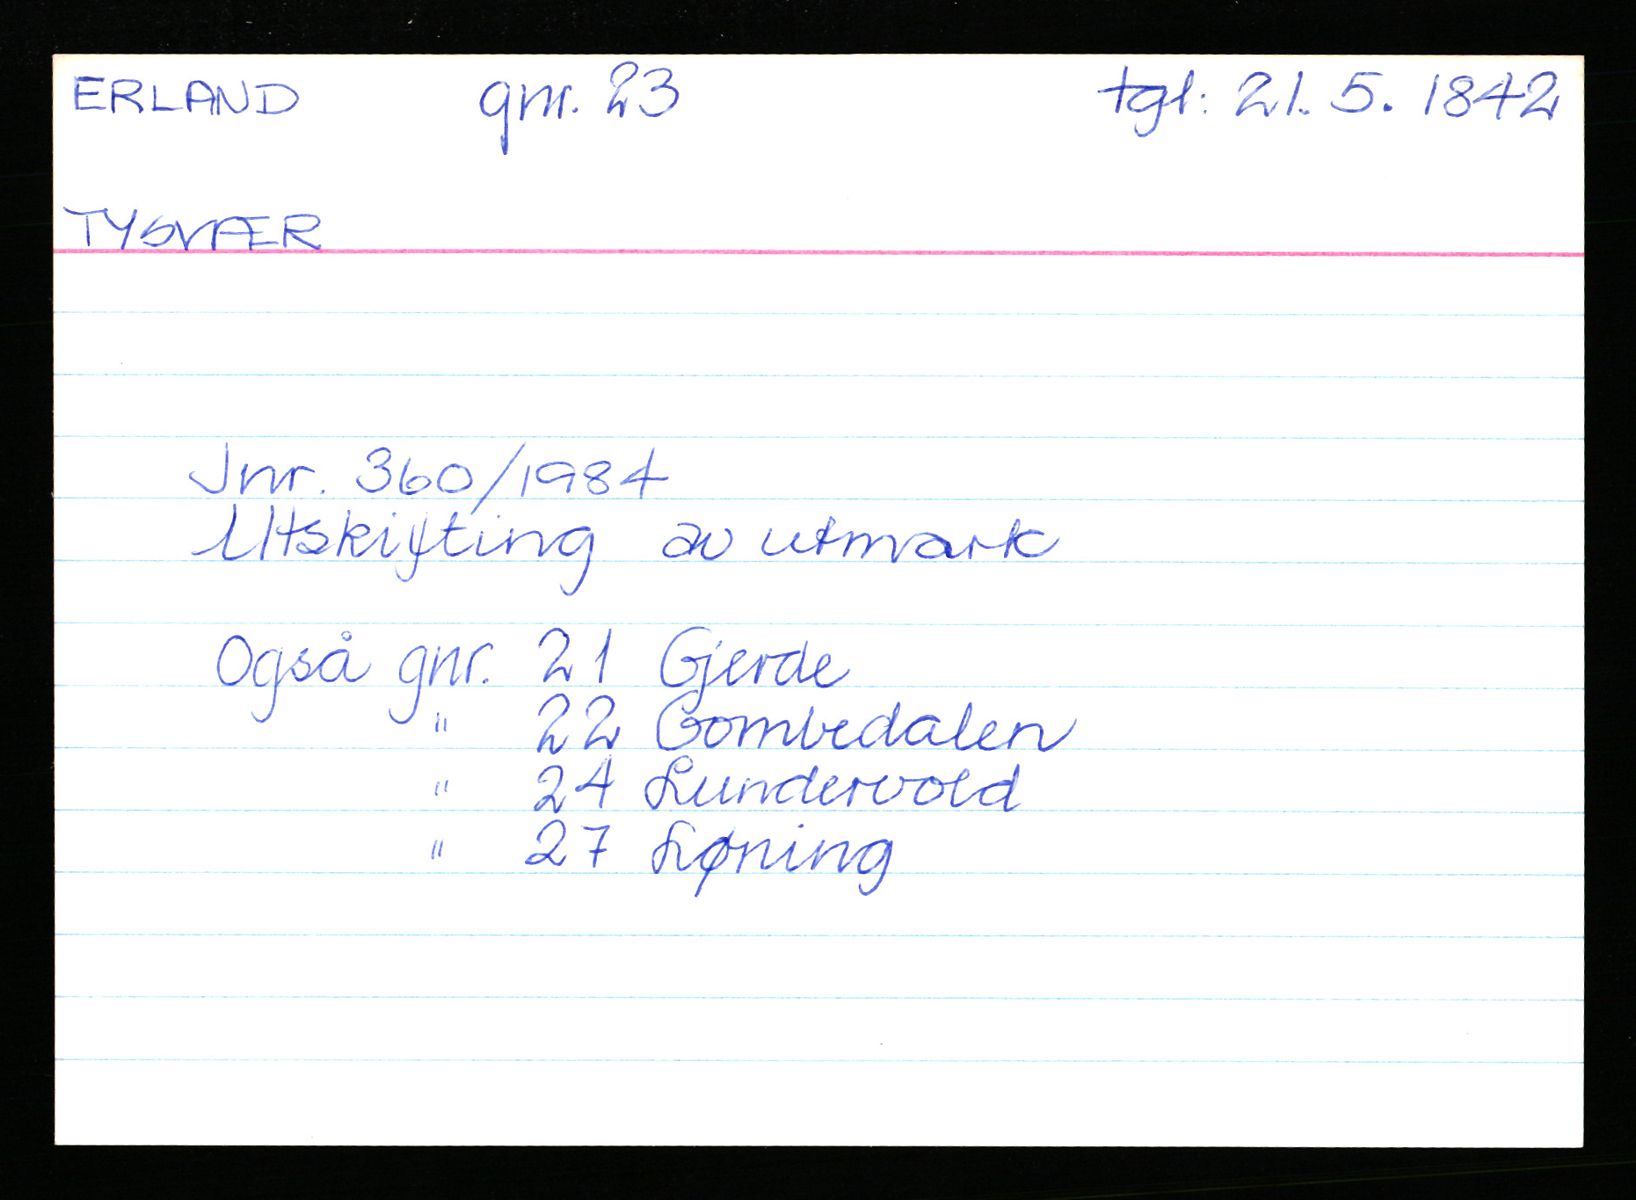 ERLAND gnr. 23 tgl: 21. 5. 1842
TYSVÆR
Jnr. 360/1984
Utskifting av utmark
Også gnr. 21 Gjerde
" 22 Gombedalen
" 24 Lundervold
" 27 Løning